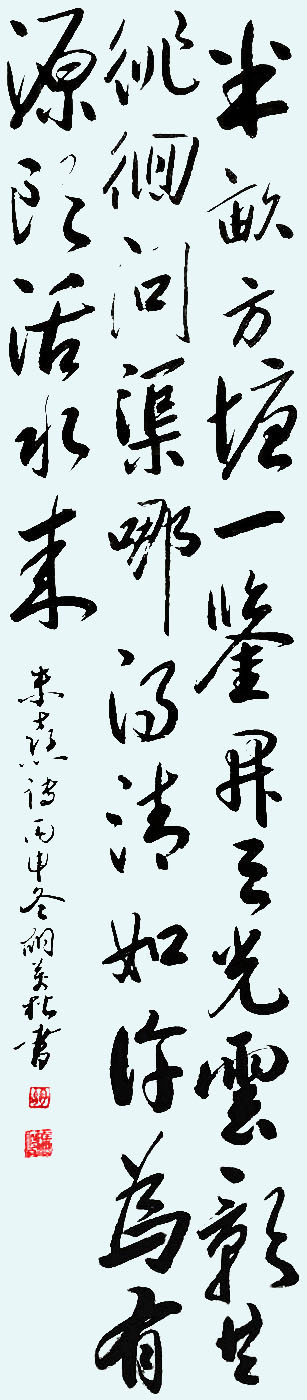 半畝方塘一鑒開天光雲影共
徘徊問渠哪得清如許為有
源頭活水來
朱熹詩丙申冬胡書